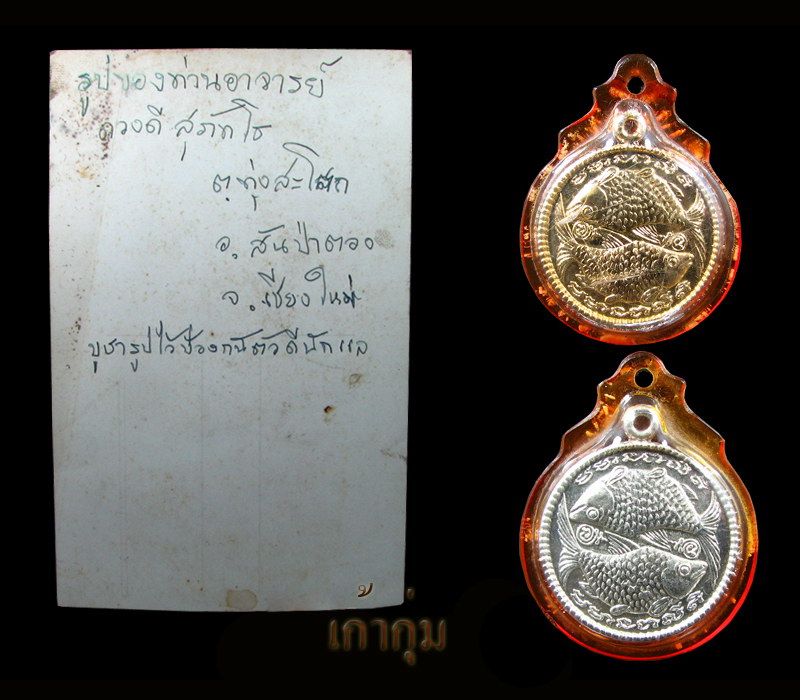 รูปของท่านอาจารย์
ดวงดี สุภทฺโธ
ต.ทุ่งสะโตก
อ.สันป่าตอง
จ.เชียงใหม่
บูชารูปไว้ป้องกันตัวดีนักแล
เกากุ่ม